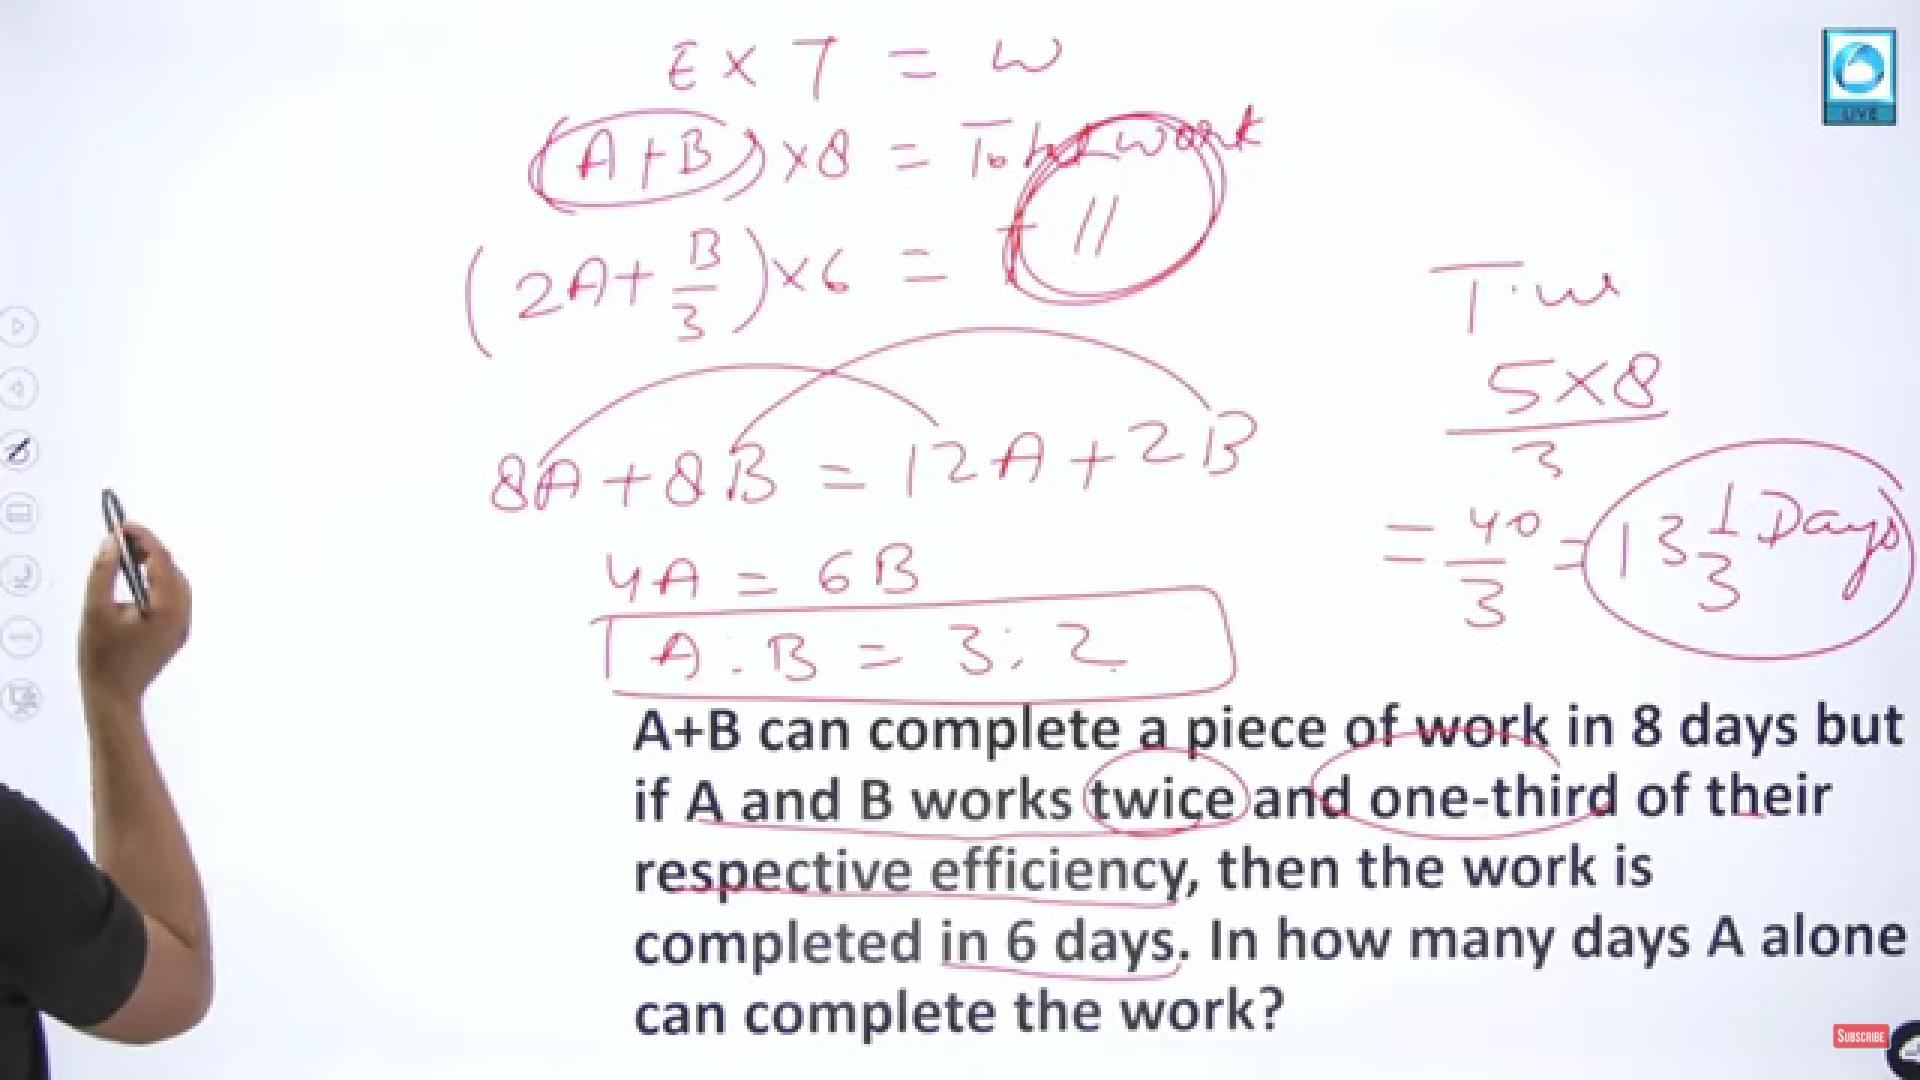 E × T = W
(A+B) × 8 = Total work
(2A + B/3) × 6 = 11
8A + 8B = 12A + 2B
4A = 6B
A : B = 3 : 2
T.w
5×8
3
= 40/3 = 13 1/3 Days
A+B can complete a piece of work in 8 days but
if A and B works twice and one-third of their
respective efficiency, then the work is
completed in 6 days. In how many days A alone
can complete the work?
LIVE
SUBSCRIBE